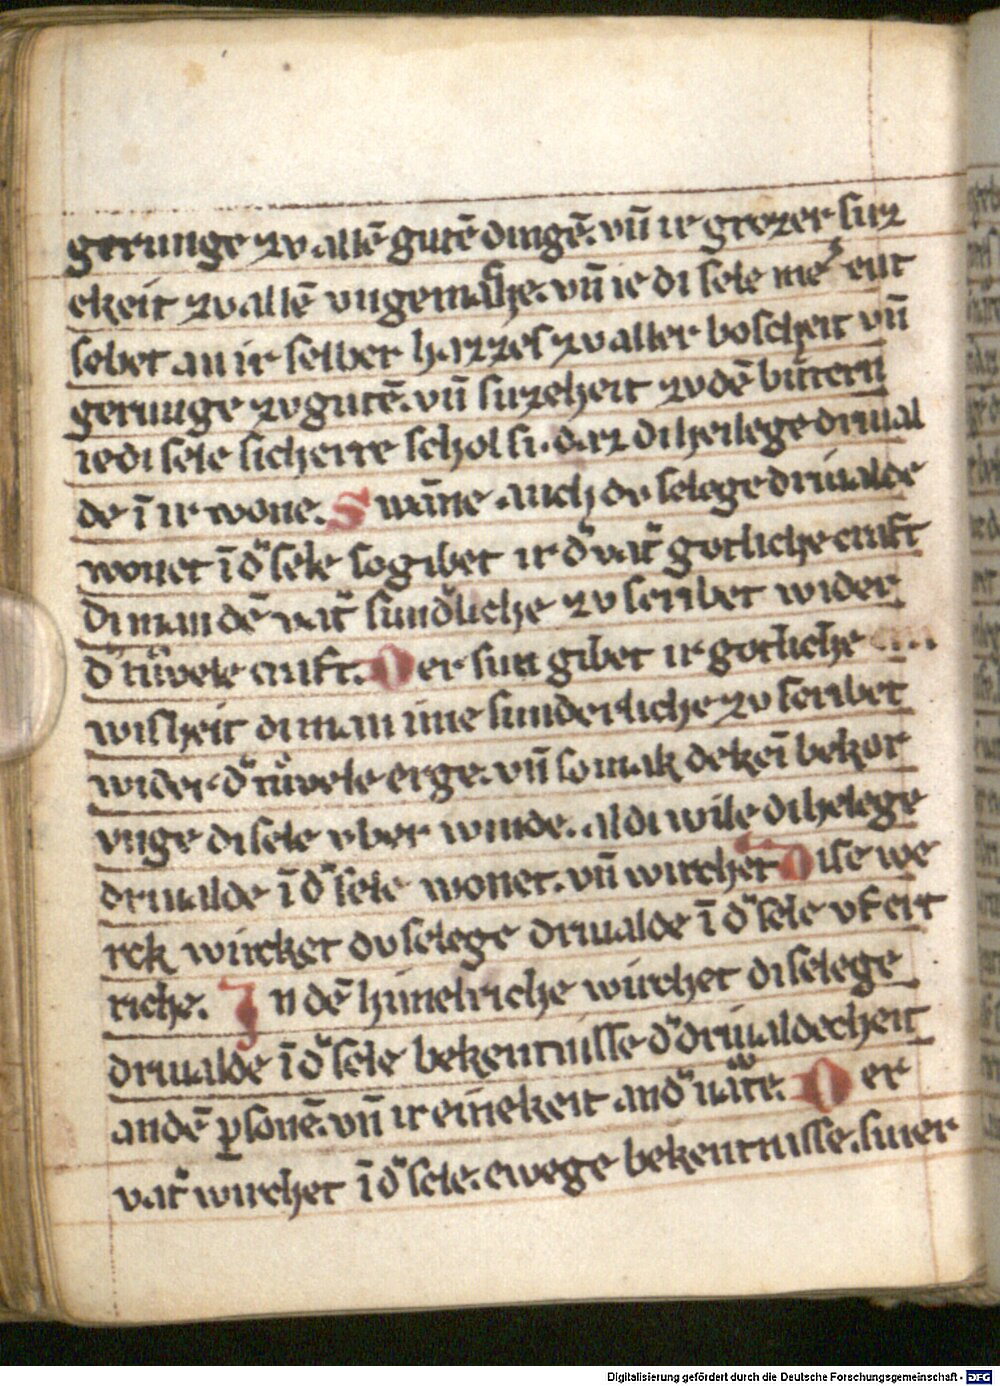 gerunge zv allē gutē dingē. vn̄ ir grozer suz
ekeit zv allē vngemache. vn̄ ie di sele me
sebet an ir selber hazzes zv aller bosheit vn̄
gerunge zv gutē. vn̄ suzeheit zv dē bittern
ie di sele sicherre schol si. daz di heilege drival
de ī ir wone. Swāne auch dv selege drivalde
wonet ī d᷑ sele so gibet ir d᷑ vat᷑ gotliche craft
di man dē vat᷑ sund᷑liche zv scribet wider
d᷑ tuͤvele craft. Der sun gibet ir gotliche
wisheit di man ime sunderliche zv scribet
wider d᷑ tuͤvele erge. vn̄ so mak dekeī bekor
vnge di sele vber winde. al di wile di helege
drivalde ī d᷑ sele wonet. vn̄ wirchet Dise we
rck wircket dv selege drivalde ī d᷑ sele vf ert
riche. In dē himelriche wirchet di selege
drivalde ī d᷑ sele bekentnisse d᷑ drivaldecheit
an dē ꝑsonē. vn̄ ir einekeit an d᷑ Der
vat᷑ wirchet ī d᷑ sele. ewege bekentnisse. siner
Digitalisierung gefördert durch die Deutsche Forschungsgemeinschaft - DFG